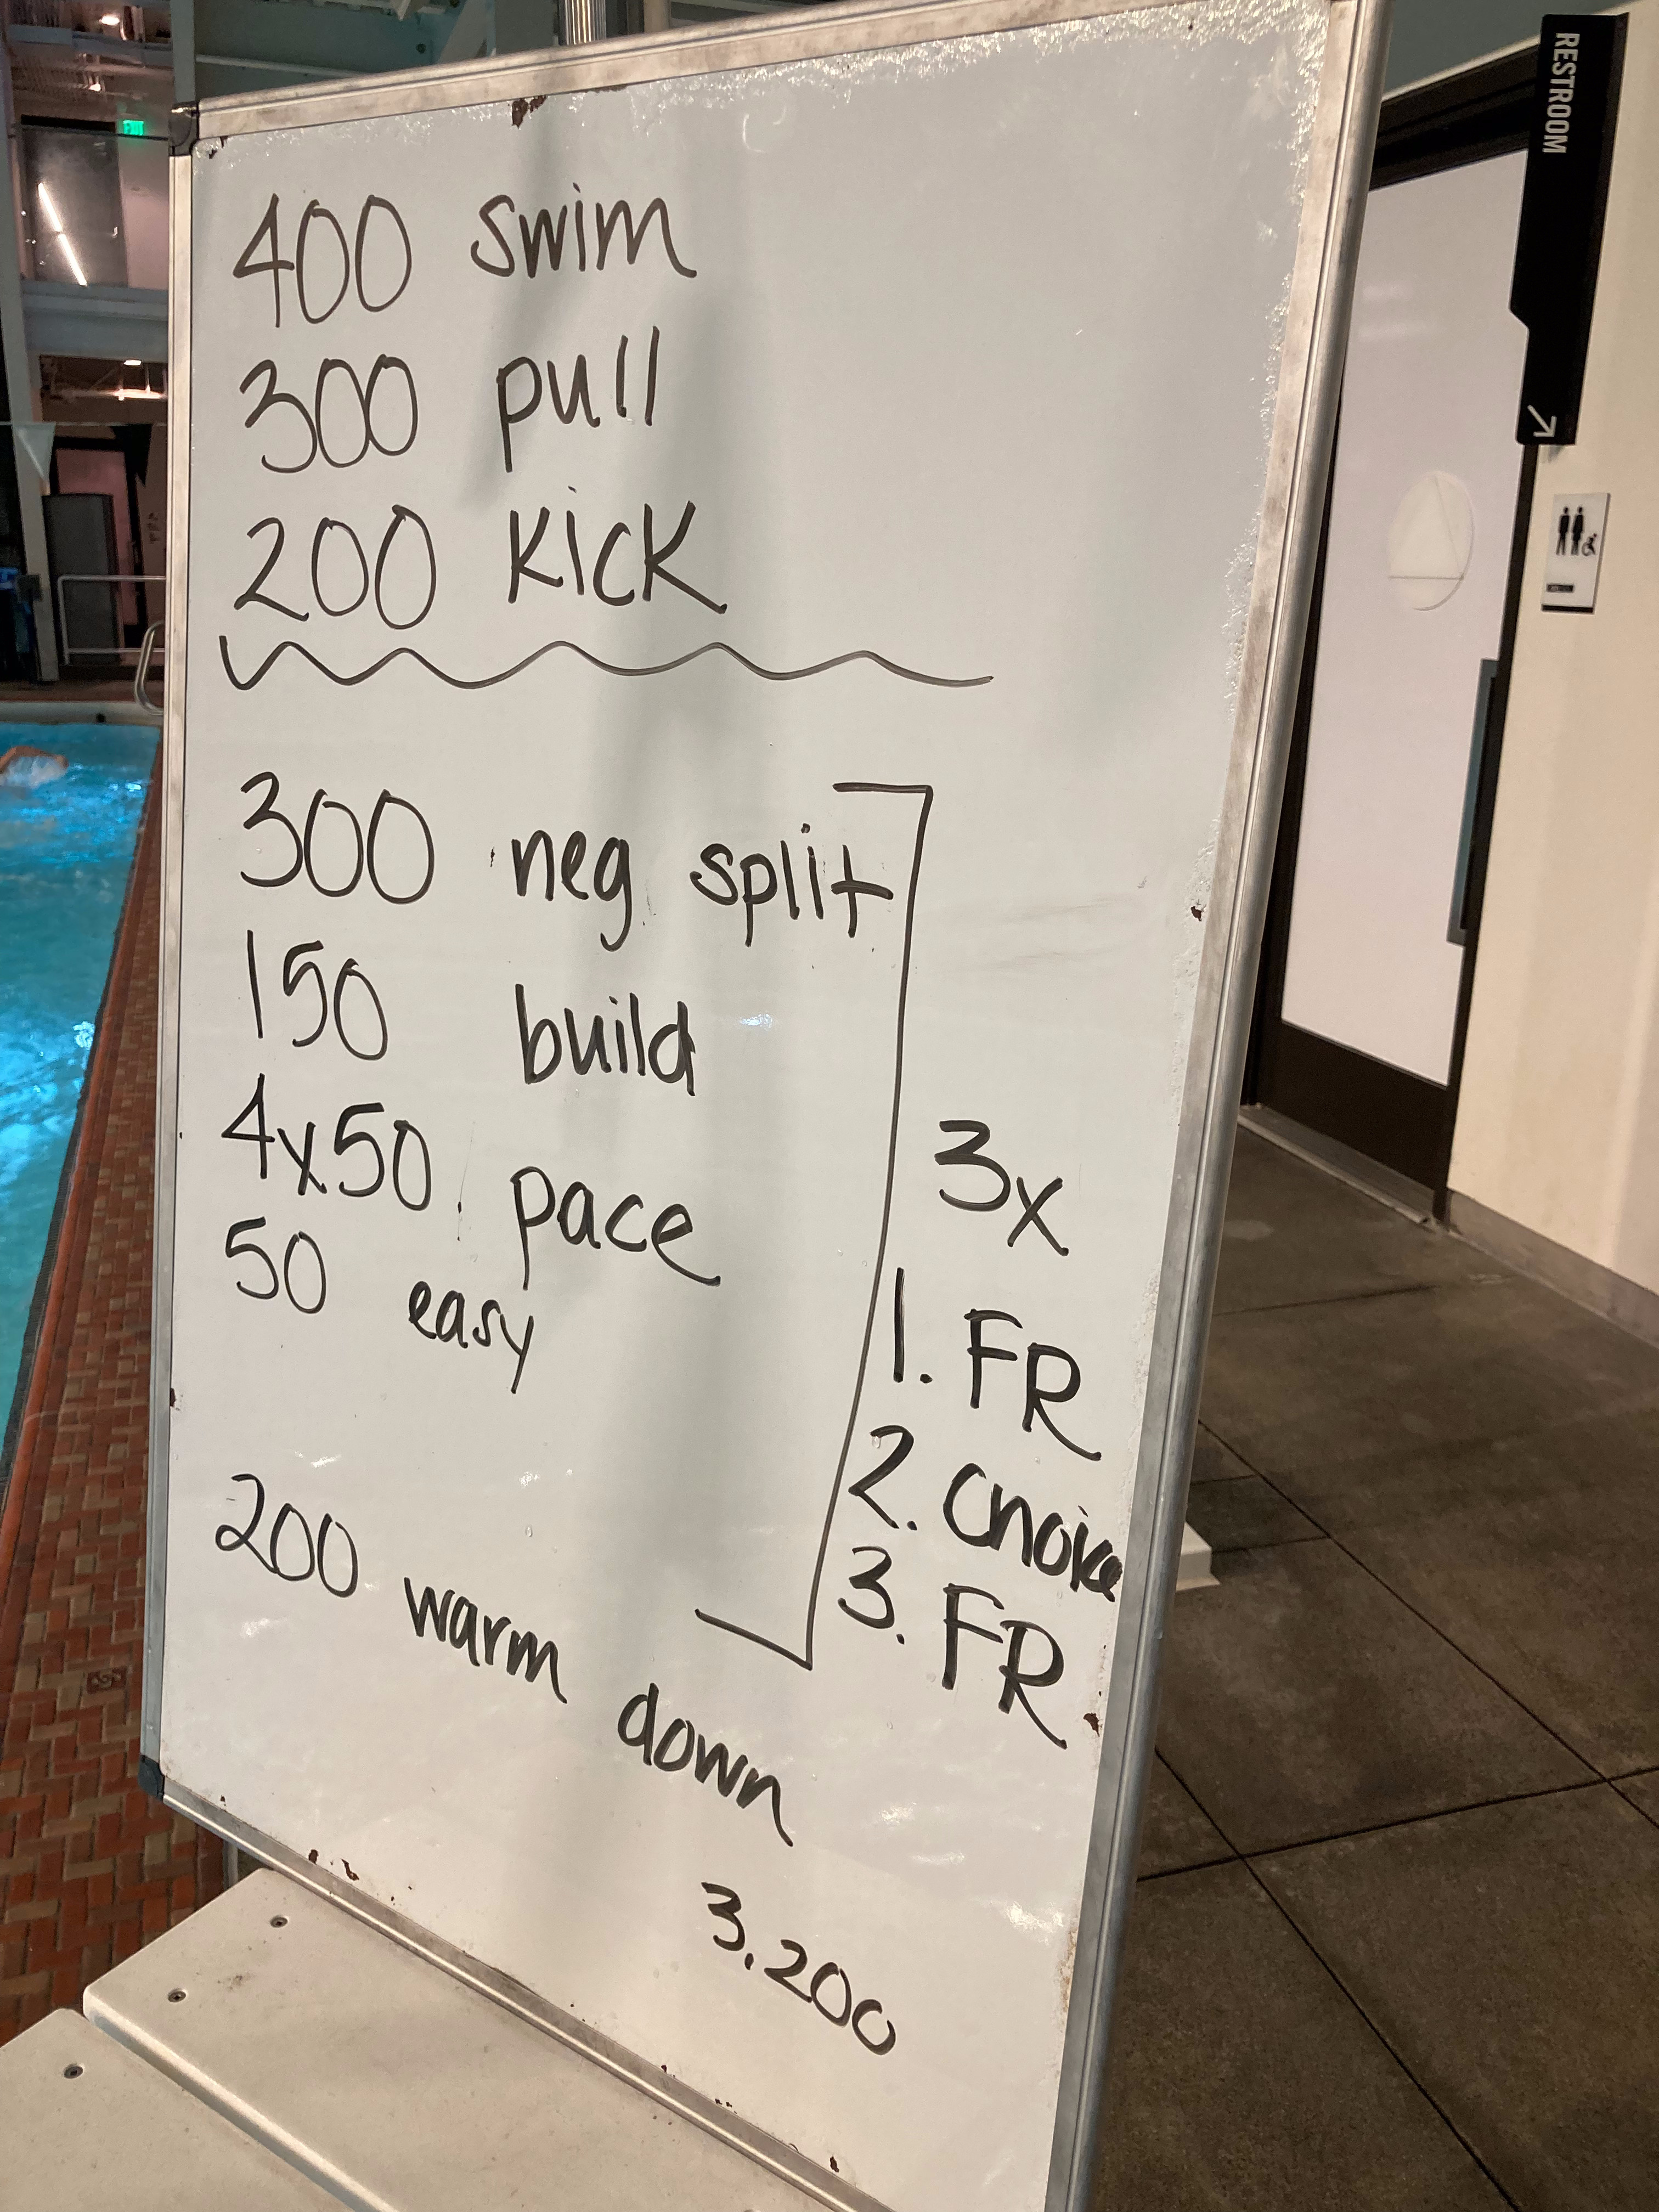 400 swim
300 pull
200 kick
300 neg split
150 build
4x50 pace
50 easy
3x
1. FR
2. choice
3. FR
200 warm down
3.200
RESTROOM